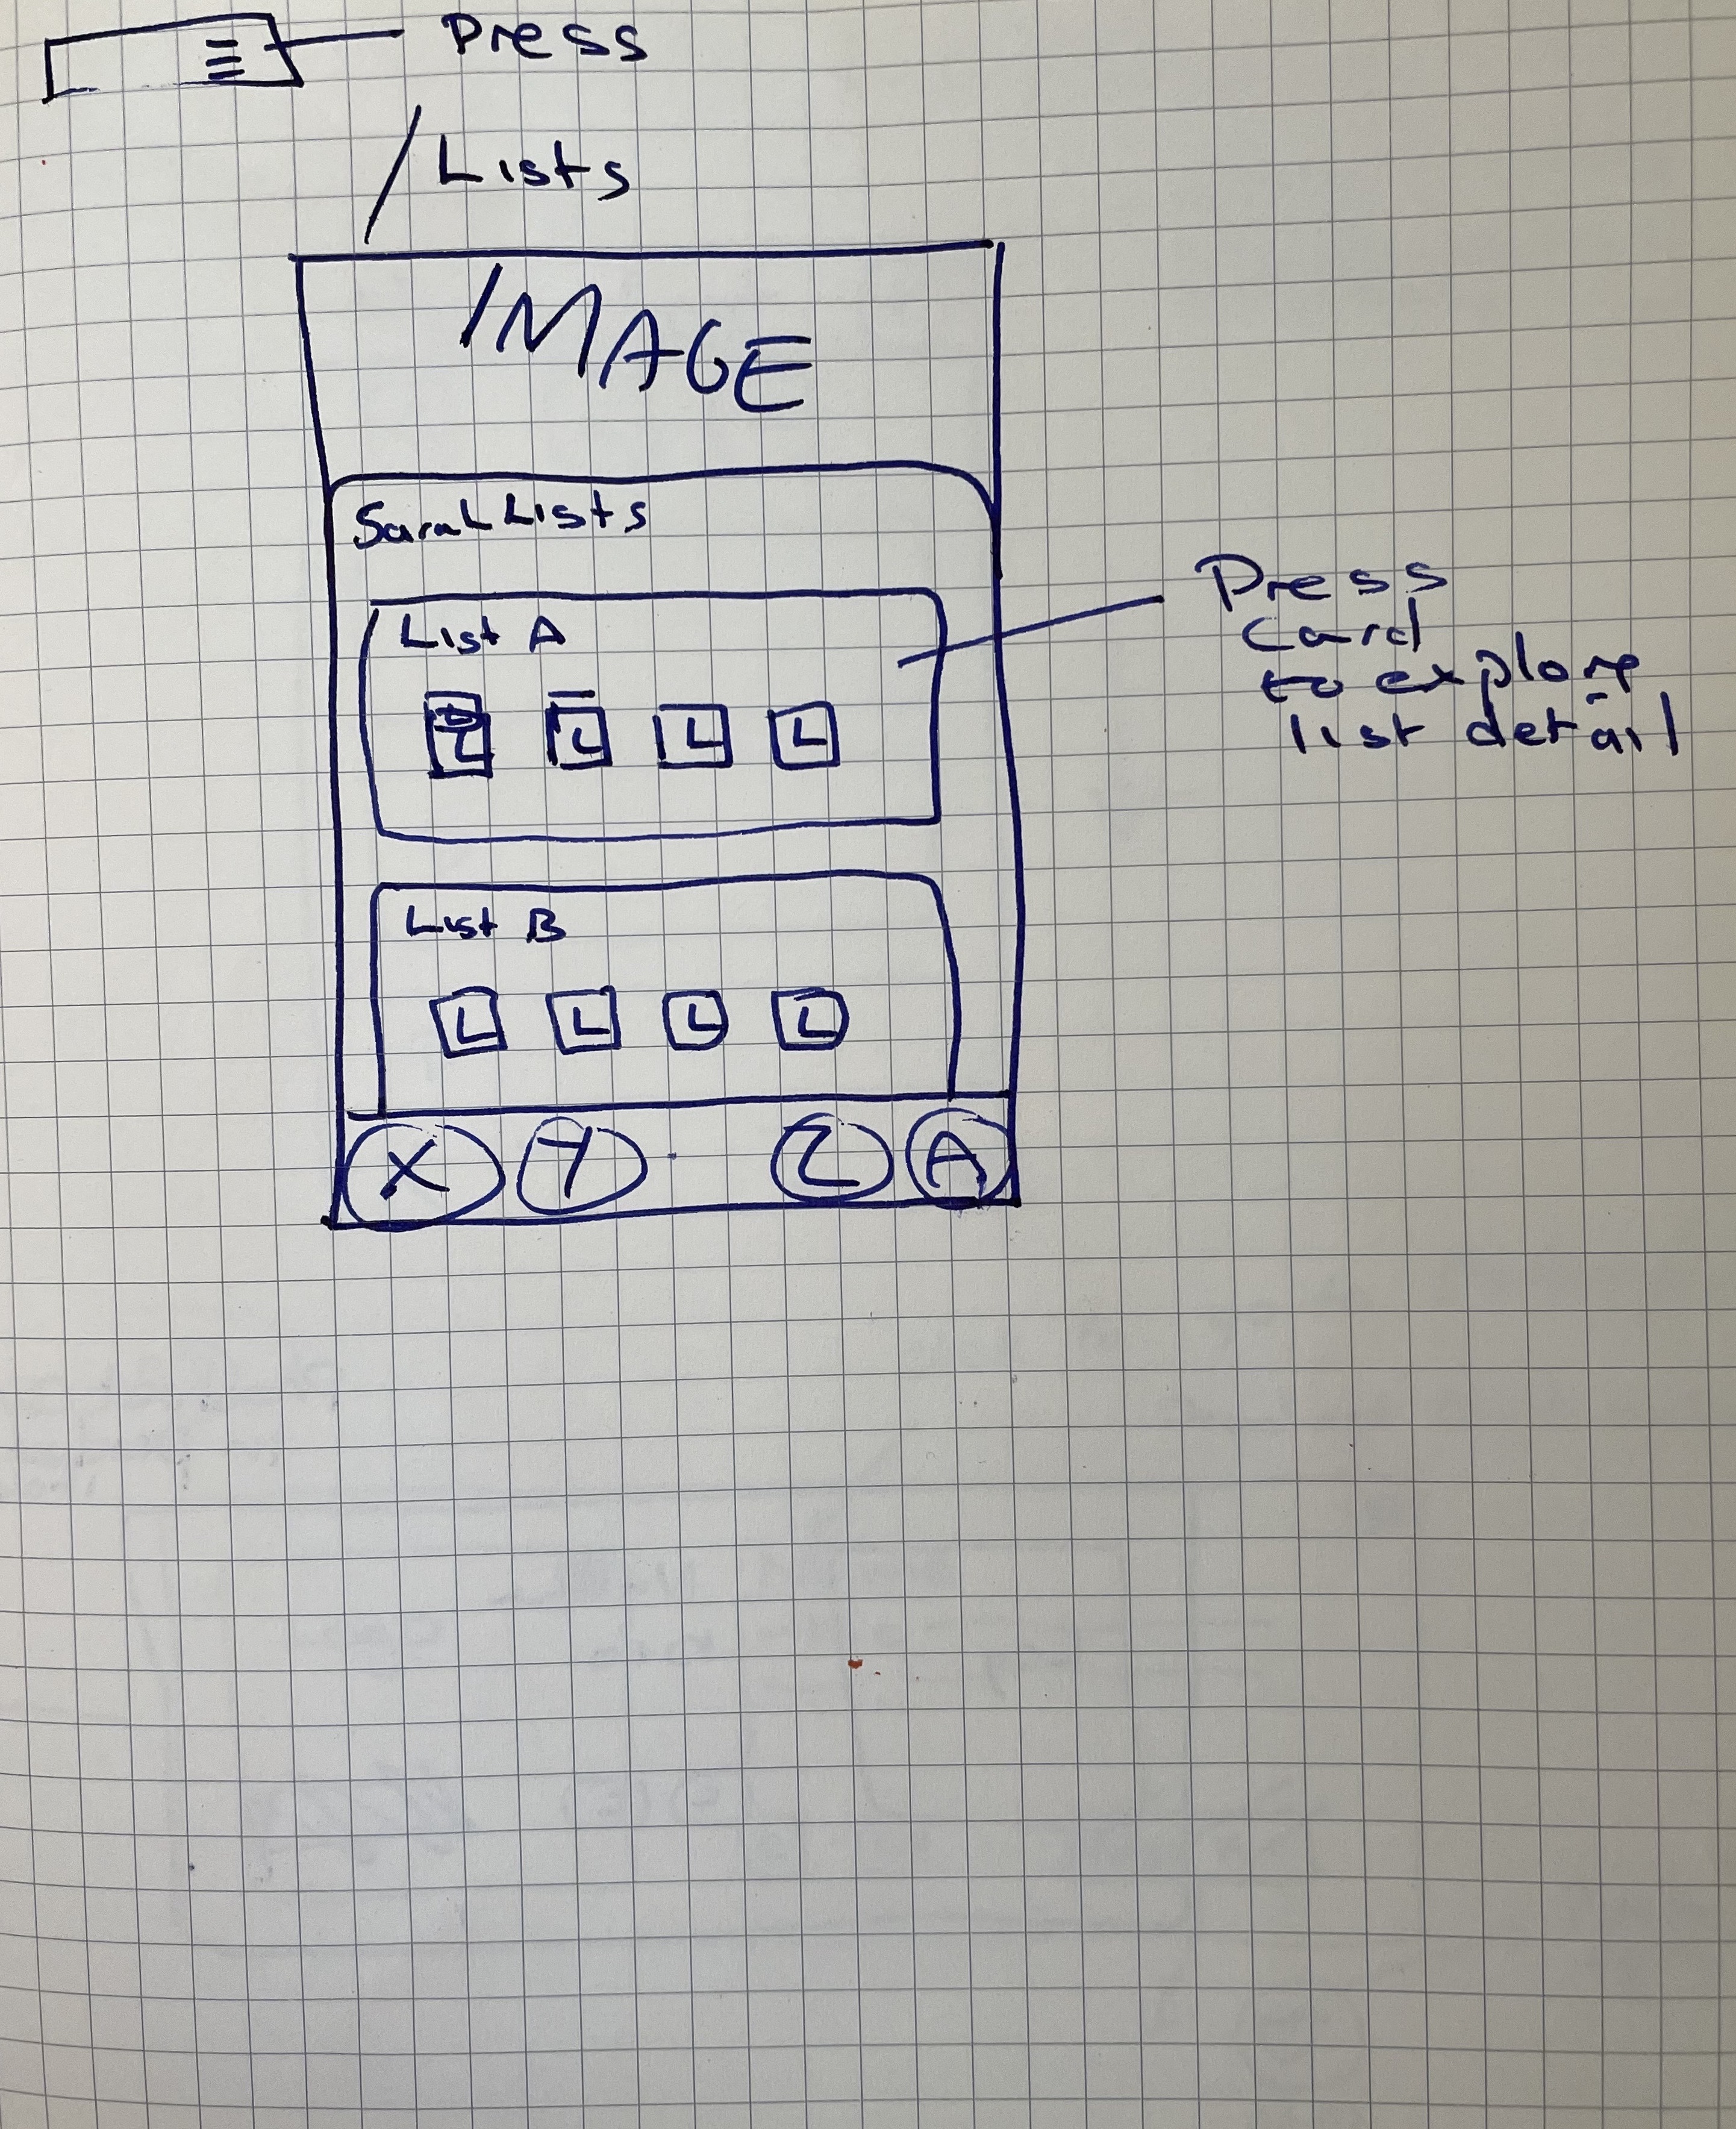 Press
/Lists
IMAGE
Sarah Lists
List A
L L L L
Press
card
to explore
list detail
List B
L L L L
X Y Z A